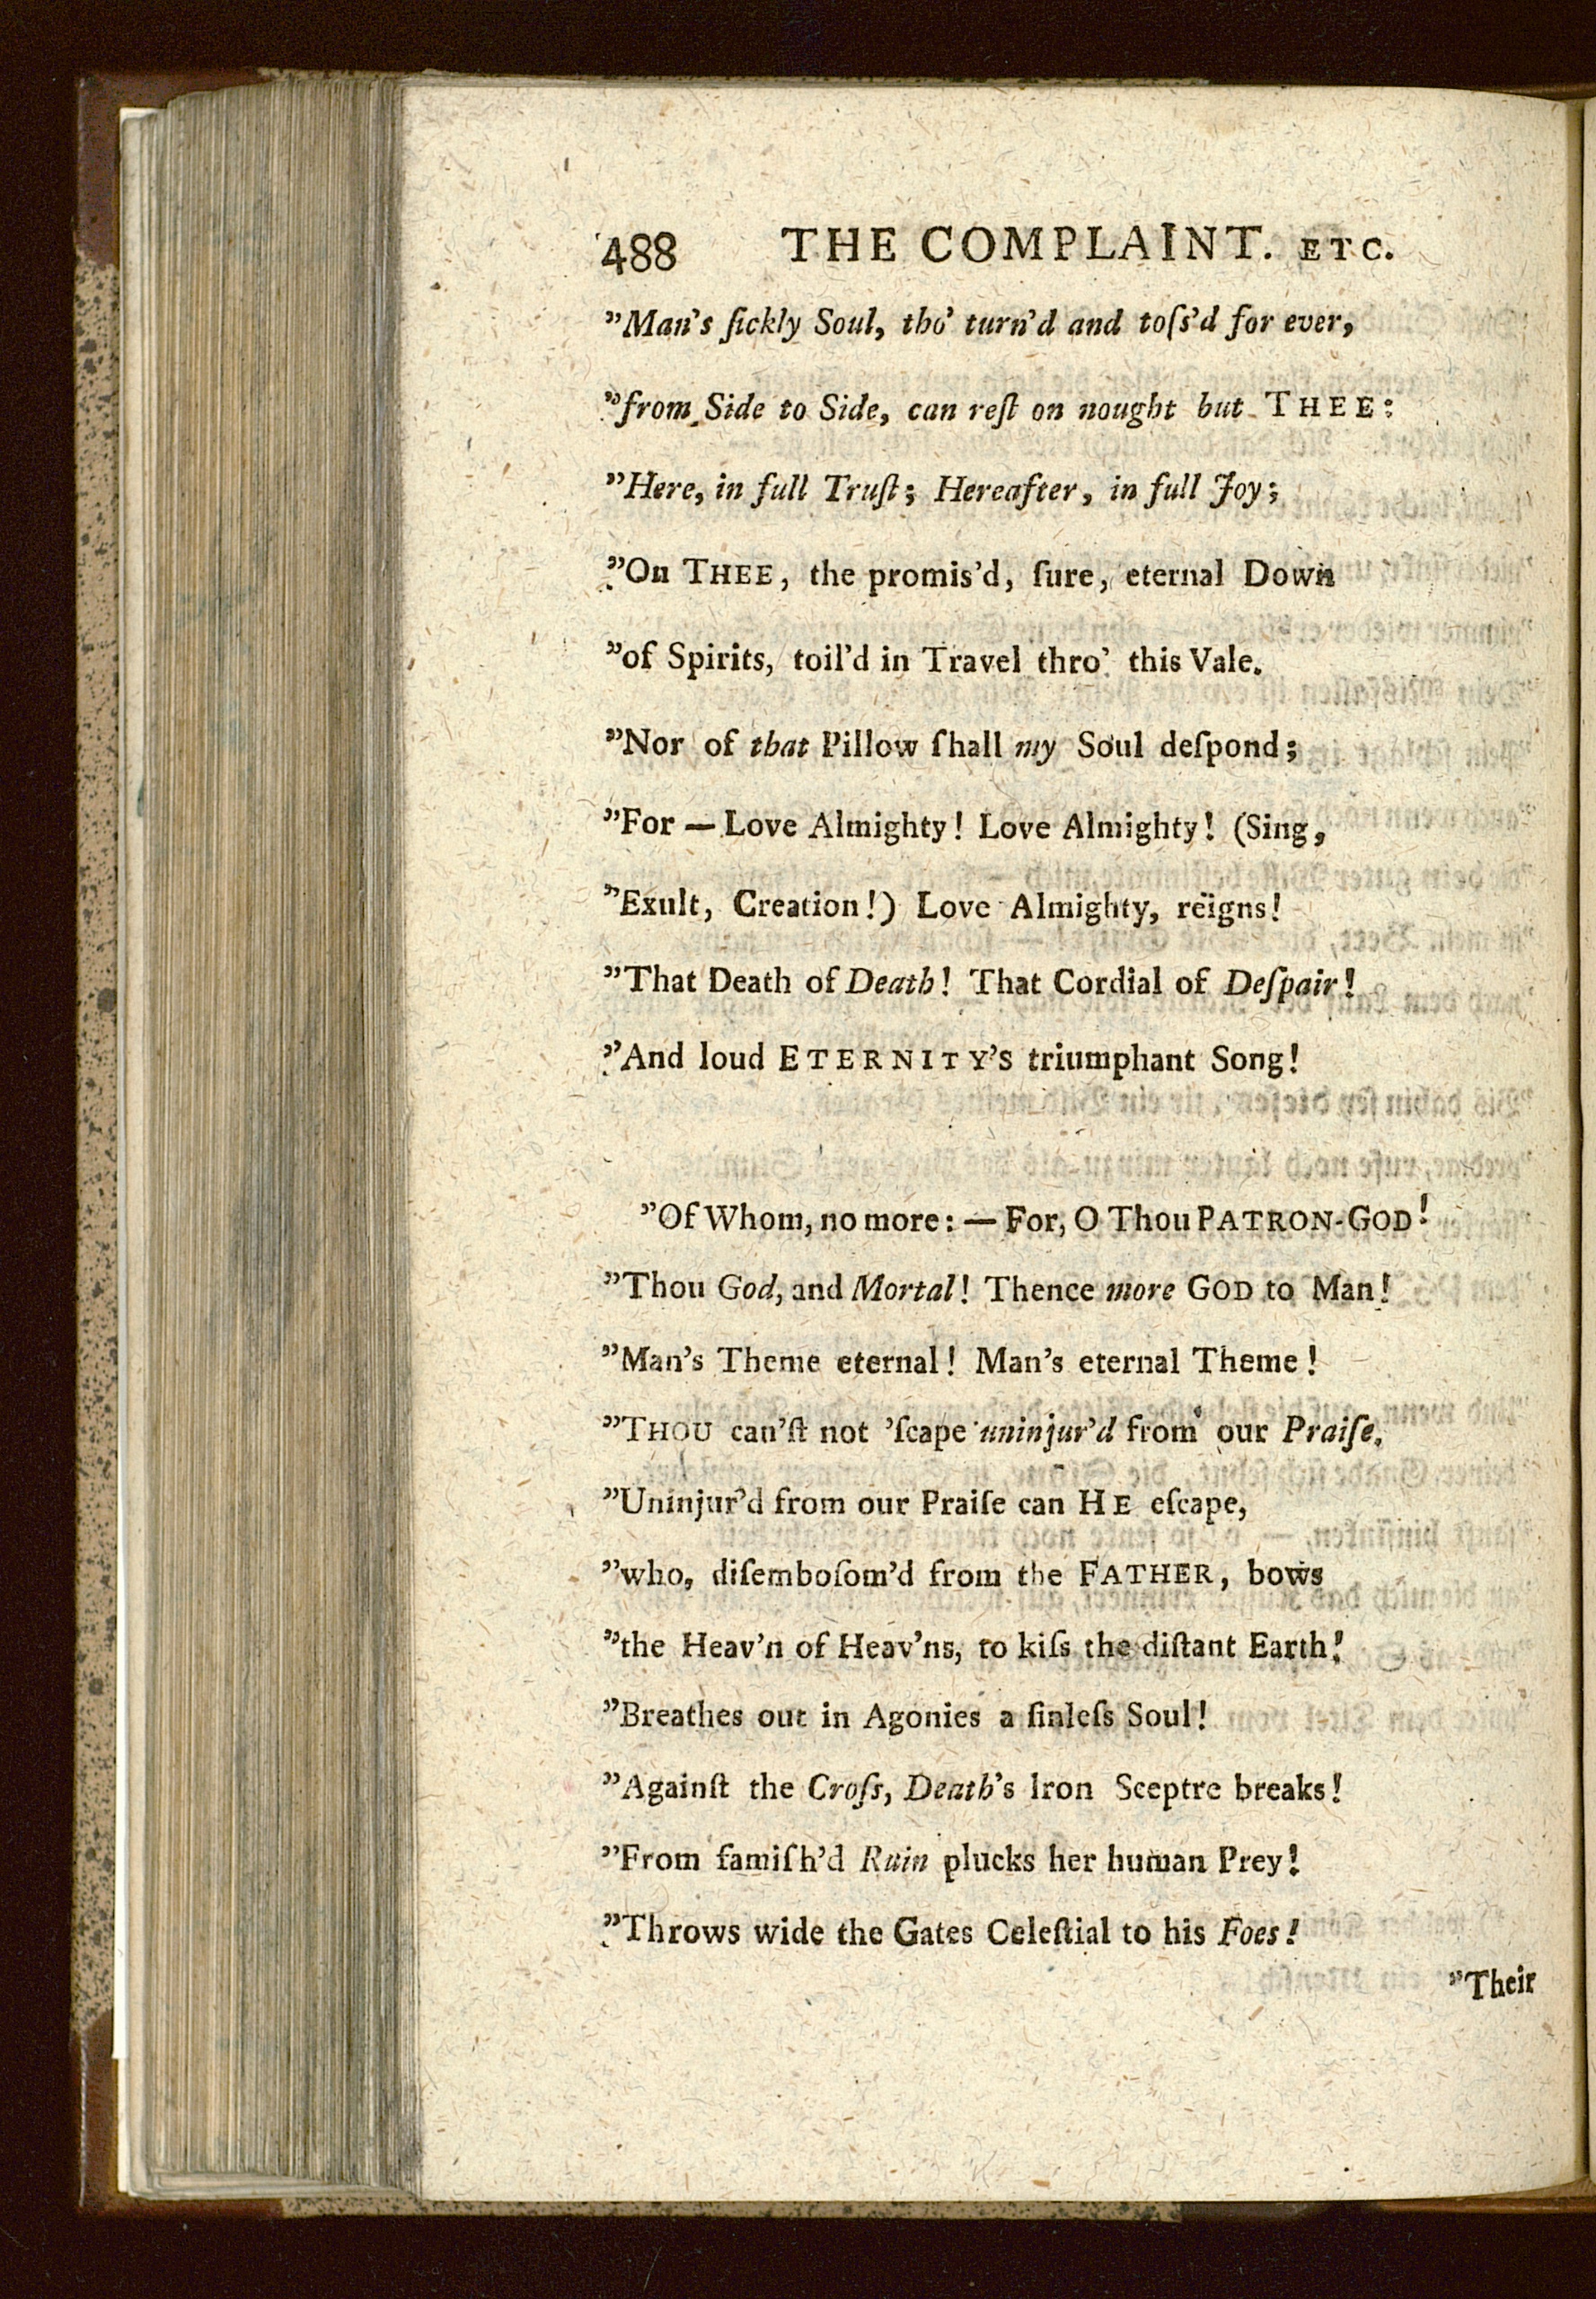 488 THE COMPLAINT. ETC.
”Man's ſickly Soul, tho' turn'd and toſs'd for ever,
”from Side to Side, can reſt on nought but THEE:
”Here, in full Truſt; Hereafter, in full Joy;
”On THEE, the promis'd, ſure, eternal Down
”of Spirits, toil'd in Travel thro' this Vale.
”Nor of that Pillow ſhall my Soul deſpond;
”For — Love Almighty! Love Almighty! (Sing,
”Exult, Creation!) Love Almighty, reigns!
”That Death of Death! That Cordial of Deſpair!
”And loud ETERNITY'S triumphant Song!
”Of Whom, no more: — For, O Thou PATRON-GOD!
”Thou God, and Mortal! Thence more GOD to Man!
”Man's Theme eternal! Man's eternal Theme!
”THOU can'ſt not 'ſcape uninjur'd from our Praiſe.
”Uninjur'd from our Praiſe can HE eſcape,
”who, diſemboſom'd from the FATHER, bows
”the Heav'n of Heav'ns, to kiſs the diſtant Earth!
”Breathes out in Agonies a ſinleſs Soul!
”Againſt the Croſs, Death's Iron Sceptre breaks!
”From famiſh'd Ruin plucks her human Prey!
”Throws wide the Gates Celeſtial to his Foes!
”Their